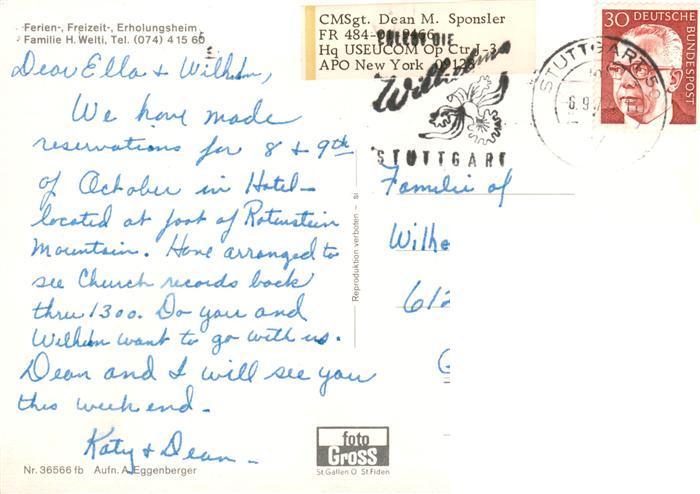 Ferien-, Freizeit-, Erholungsheim
Familie H. Welti, Tel. (074) 4 15 60
Dear Ella & Wilhelm,
We have made
reservations for 8 & 9th
of October in Hotel -
located at foot of Rotenstein
Mountain. Have arranged to
see Church records back
thru 1300. Do you and
Wilhelm want to go with us.
Dean and I will see you
this weekend.
Katy & Dean -
Nr. 36566 fb Aufn. A. Eggenberger
Reproduktion verboten - si
foto
Gross
St. Gallen O St. Fiden
CMSgt. Dean M. Sponsler
FR
Hq USEUCOM Op Ctr J-3
APO New York 09128
Wilhelma
STUTTGART
30 DEUTSCHE
BUNDESPOST
STUTTGART
6.9.7
Familie of
Wilhe
612